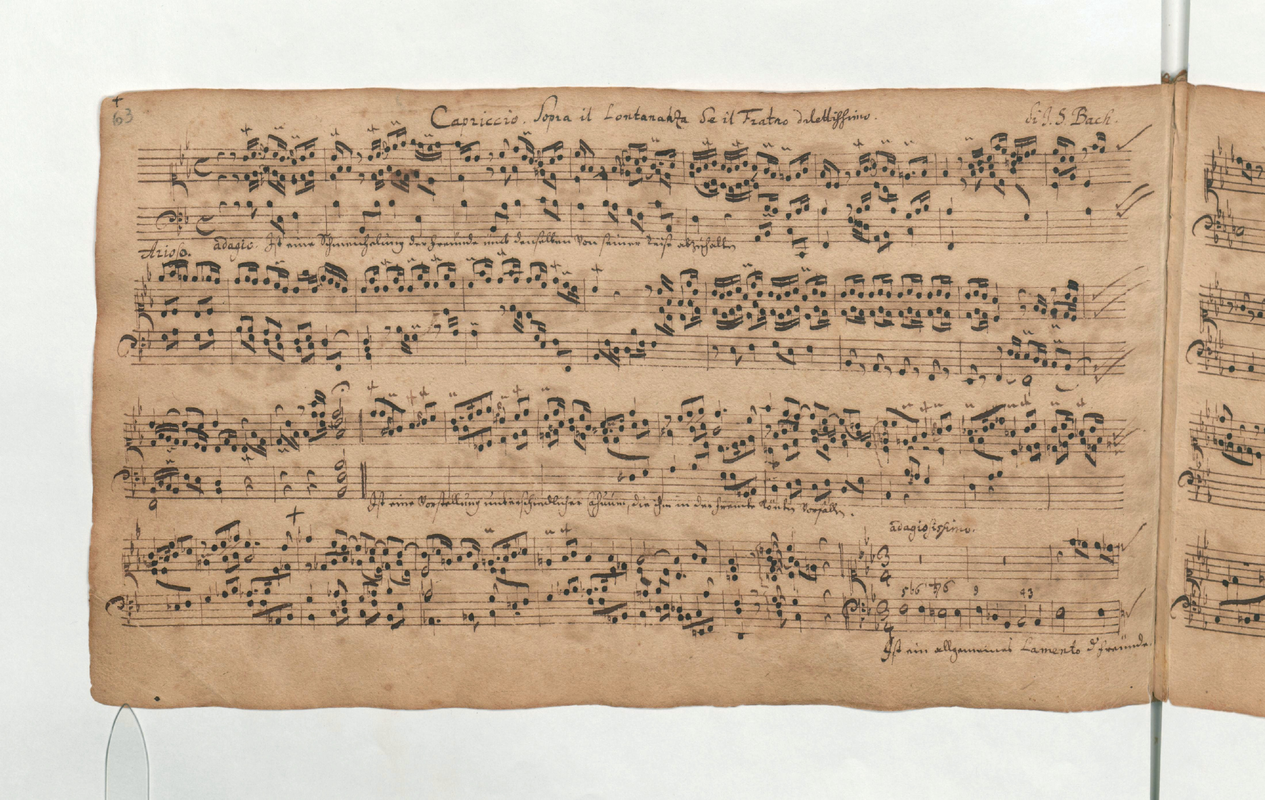 63
Capriccio. Sopra il Lontananza de il Fratro dilettissimo. di J. S. Bach.
Arioso. adagio. Ist eine Schmeichelung der Freunde um denselben von seiner Reise abzuhalten
Ist eine Vorstellung unterschiedlicher Casuum, die ihm in der frembde könten vorfallen.
adagiosissimo.
5 b6 b7 6 9 43
Ist ein allgemeines Lamento der Freunde.